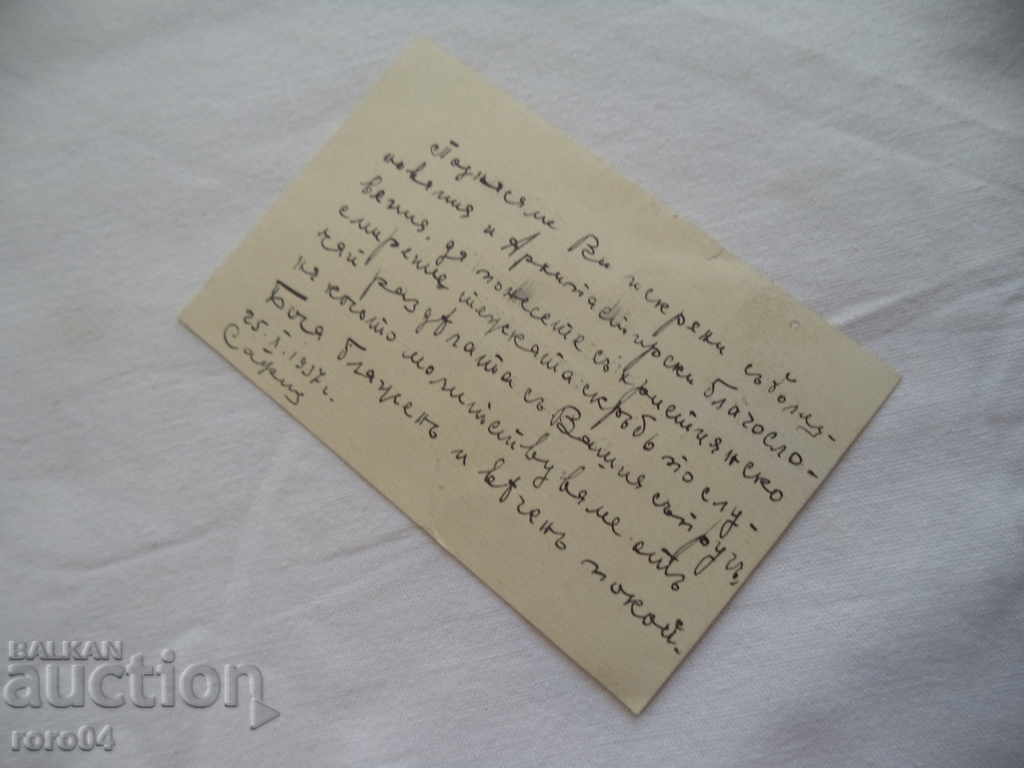 Поднасям Ви искрени съболез-
нования и Архипастирски благосло-
вения, да понесете съ християнско
смирение тежката скръбь по слу-
чай раздѣлата съ Вашия съпругъ,
на когото молитствуваме отъ
Бога блаженъ и вѣченъ покой.
25.X.1937 г.
София
BALKAN
auction
roro04